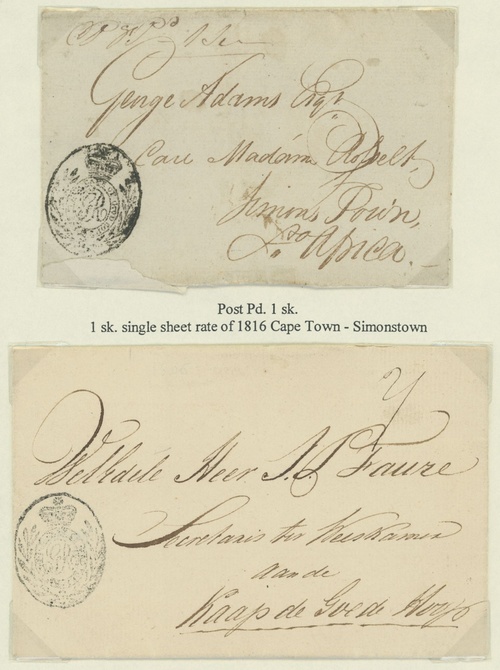 Post Pd. 1 sk.
George Adams Esqr.
Care Madam
Simons Town,
Africa.
Post Pd. 1 sk.
1 sk. single sheet rate of 1816 Cape Town - Simonstown
WelEdele Heer J. J. Faure
Secretaris ter Weeskamer
aan de
Kaap de Goede Hoop